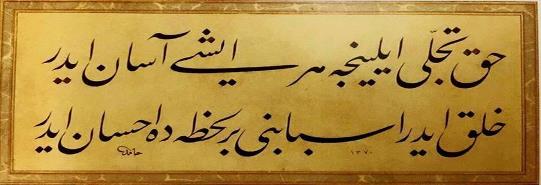 حق تجلّی ایلینجه هر ایشی آسان ایدر
خلق ایدر اسبابنی بر لحظه ده احسان ایدر
حامد ١٣٧٠